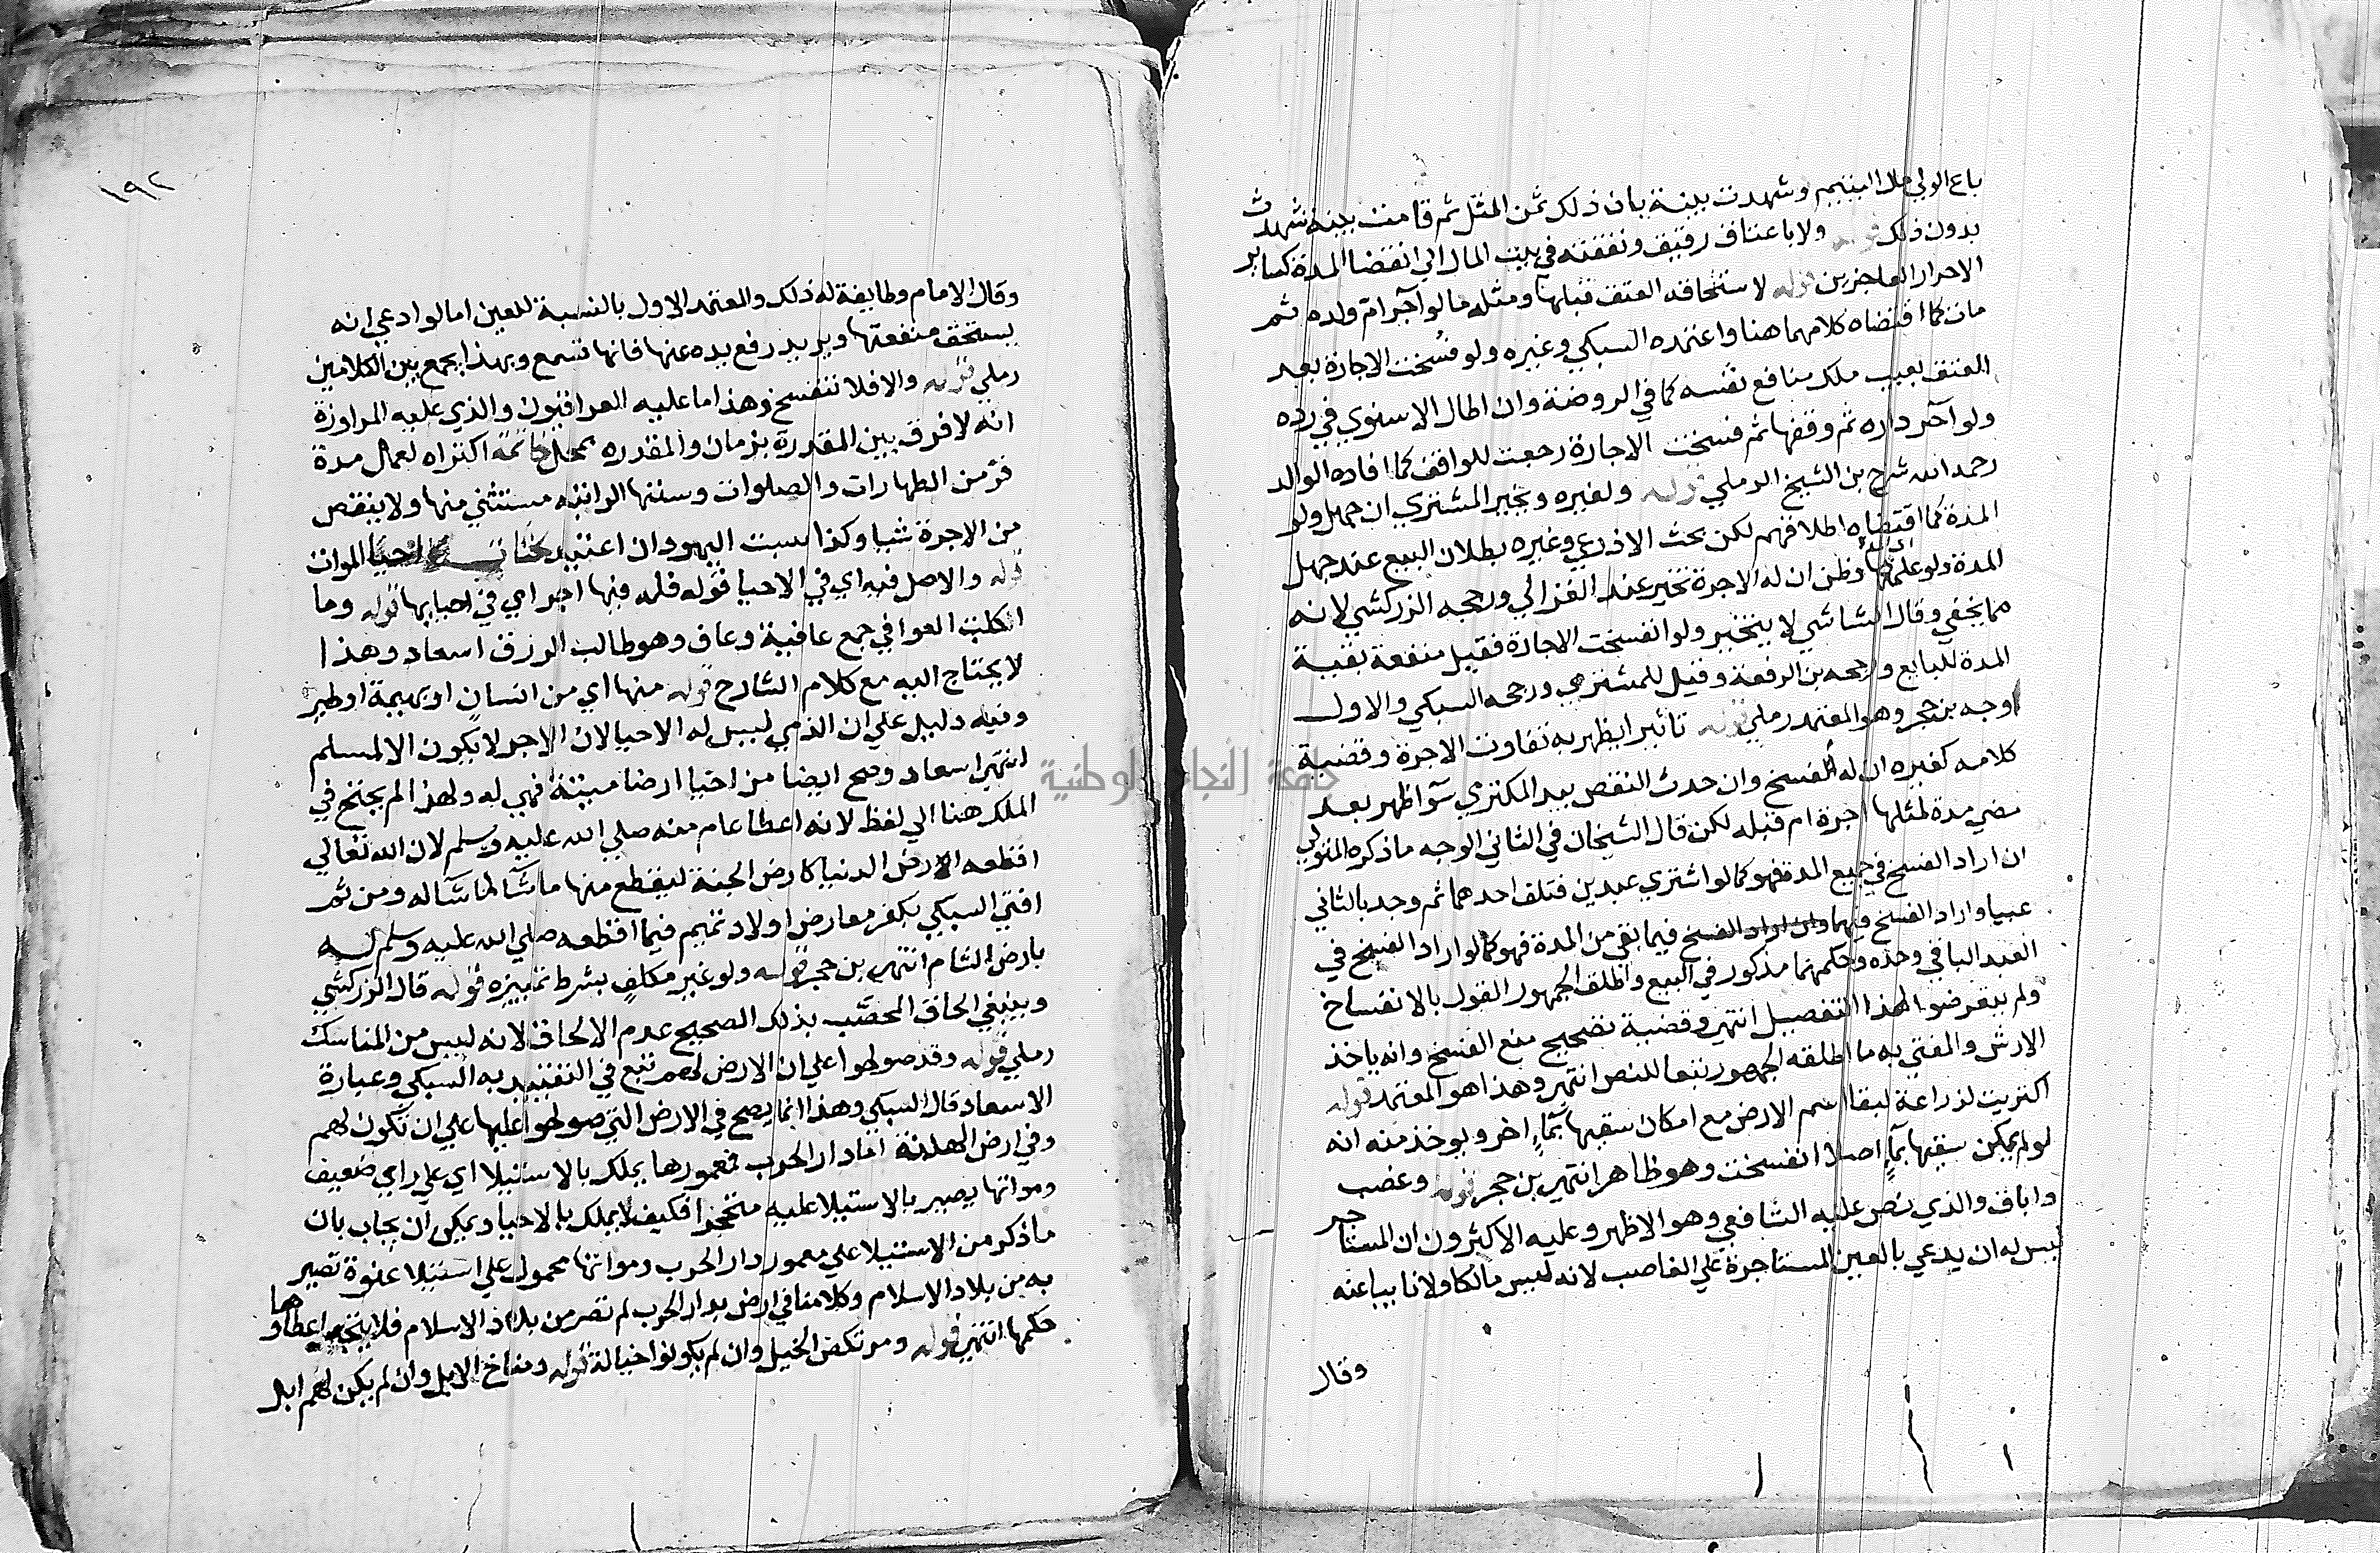 باع الولي مال اليتيم وشهدت بينة بان ذلك ثمن المثل ثم قامت بينة شهدت
بدون ذلك قوله ولا باعتاق رقيق ونفقته في بيت المال الي انقضا المدة كساير
الاحرار العاجزين قوله لاستحقاقه العتق قبلها ومثله ما لو آجر ام ولده ثم
مات كما اقتضاه كلامهما هنا واعتمده السبكي وغيره ولو فسخت الاجارة بعد
العتق بعيب ملك منافع نفسه كما في الروضة وان اطال الاسنوي في رده
ولو آجر داره ثم وقفها ثم فسخت الاجارة رجعت للواقف كما افاده الوالد
رحمه الله شرح بن الشيخ الرملي قوله ولغيره ويخير المشتري ان جهل ولو
المدة كما اقتضاه اطلاقهم لكن بحث الاذرعي وغيره بطلان البيع عند جهل
المدة ولو علمها وظن ان له الاجرة تخير عند الغزالي ورجحه الزركشي لانه
مما يخفي وقال الشاشي لا يتخير ولو انفسخت الاجارة فقيل منفعة بقية
المدة للبايع ورجحه بن الرفعة وقيل للمشتري ورجحه السبكي والاول
اوجه بن حجر وهو المعتمد رملي قوله تاثيرا يظهر به تفاوت الاجرة وقضية
كلامه كغيره ان له الفسخ وان حدث النقص بيد المكتري سوآ ظهر بعد
مضي مدة لمثلها اجرة ام قبله لكن قال الشيخان في الثاني الوجه ما ذكره المتولي
ان اراد الفسخ في جميع المدة فهو كما لو اشتري عبدين فتلف احدهما ثم وجد بالثاني
عيبا واراد الفسخ فيهما وان اراد الفسخ فيما بقي من المدة فهو كما لو اراد الفسخ في
العبد الباقي وحده وحكمهما مذكور في البيع واطلق الجمهور القول بالانفساخ
ولم يتعرضوا لهذا التفصيل انتهي وقضية تصحيح منع الفسخ وانه ياخذ
الارش والمفتي به ما اطلقه الجمهور تبعا للنص انتهي وهذا هو المعتمد قوله
اكتريت لزراعة لبقا اسم الارض مع امكان سقيها بمآ اخر ويوخذ منه انه
لو لم يمكن سقيها بمآ اصلا انفسخت وهو ظاهر انتهي بن حجر قوله وغصب
واباق والذي نص عليه الشافعي وهو الاظهر وعليه الاكثرون ان المستاجر
ليس له ان يدعي بالعين المستاجرة علي الغاصب لانه ليس مالكا ولا نايبا عنه
وقال
١٩٢
وقال الامام وطايفة له ذلك والمعتمد الاول بالنسبة للعين اما لو ادعي انه
يستحق منفعتها ويريد رفع يده عنها فانها تسمع وبهذا يجمع بين الكلامين
رملي قوله والا فلا تنفسخ وهذا ما عليه العراقيون والذي عليه المراوزة
انه لا فرق بين المقدرة بزمان والمقدره بمحل خاتمة اكتراه لعمل مدة
فزمن الطهارات والصلوات وسننها الراتبه مستثني منها ولا ينقص
من الاجرة شيا وكذا سبت اليهود ان اعتيد كتاب احيا الموات
قوله والاصل فيه اي في الاحيا قوله فله فيها اجر اي في احيايها قوله وما
اكلت العوافي جمع عافية وعاف وهو طالب الرزق اسعاد وهذا
لا يحتاج اليه مع كلام الشارح قوله منها اي من انسان او بهيمة او طير
وفيه دليل علي ان الذمي ليس له الاحيا لان الاجر لا يكون الا لمسلم
انتهي اسعاد وصح ايضا من احيا ارضا ميتة فهي له ولهذا لم يحتج في
الملك هنا الي لفظ لانه اعطا عام منه صلي الله عليه وسلم لان الله تعالي
اقطعه ارض الدنيا كارض الجنة ليقطع منها ما شآ لما شآ له ومن ثم
افتي السبكي بكفر معارض اولاد تميم فيما اقطعه صلي الله عليه وسلم له
بارض الشام انتهي بن حجر قوله ولو غير مكلف بشرط تمييزه قوله قال الزركشي
وينبغي الحاق المحصب بذلك الصحيح عدم الالحاق لانه ليس من المناسك
رملي قوله وقد صولحوا علي ان الارض لهم تبع في التقييد به السبكي وعبارة
الاسعاد قال السبكي وهذا انما يصح في الارض التي صولحوا عليها علي ان تكون لهم
وفي ارض الهدنة اما دار الحرب فمعمورها يملك بالاستيلا اي علي راي ضعيف
ومواتها يصير بالاستيلا عليه متحجرا فكيف لا يملك بالاحيا ويمكن ان يجاب بان
ما ذكر من الاستيلا علي معمور دار الحرب ومواتها محمول علي استيلا عنوة تصير
به من بلاد الاسلام وكلامنا في ارض بدار الحرب لم تصر من بلاد الاسلام فلا يتجه اعطاوها
حكمها انتهي قوله ومرتكض الخيل وان لم يكونوا خيالة قوله ومناخ الابل وان لم يكن لهم ابل
جامعة النجاح الوطنية